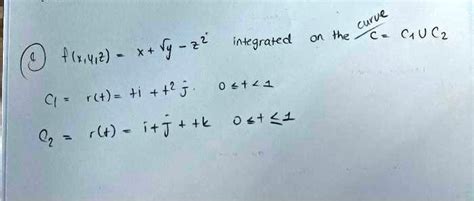 2) f(x,y,z) = x + √y - z² integrated on the curve C = C1 U C2
C1 = r(t) = ti + t² j. 0 ≤ t < 1
C2 = r(t) = i + j + tk 0 ≤ t ≤ 1